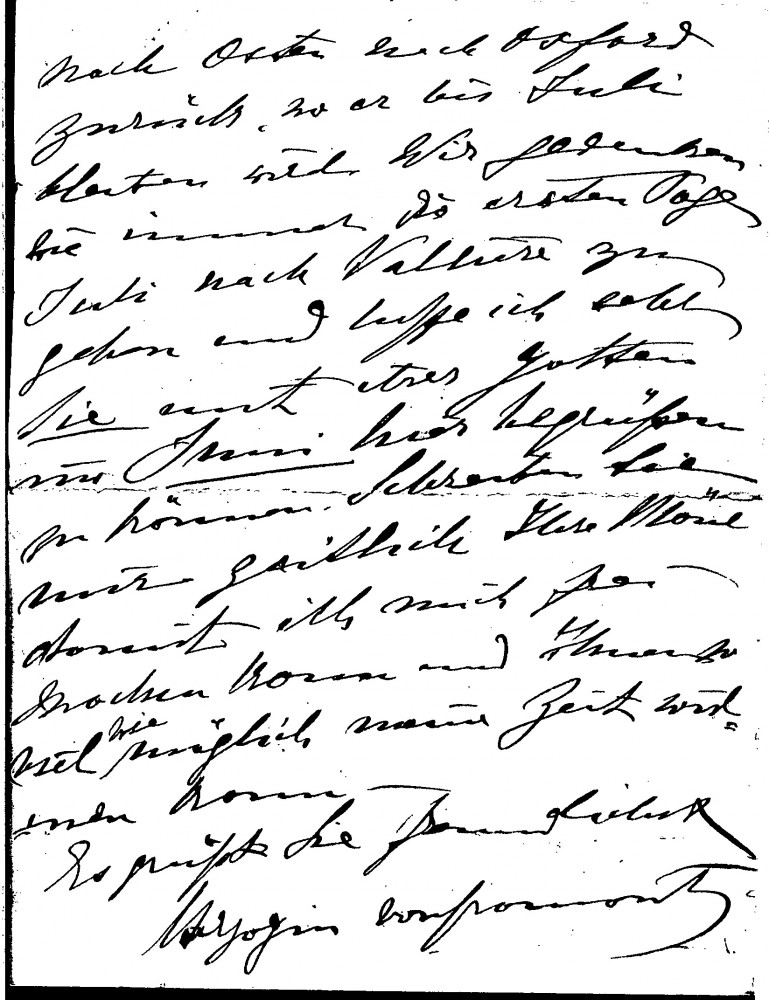 nach Ostern nach Oxford
zurück, wo er bis Juli
bleiben wird. Wir gedenken
wie immer die ersten Tage
Juli nach Vallière zu
gehen und hoffe ich sehr
Sie mit Ihrer Gattin
im Juni hier begrüßen
zu können. Schreiben Sie
mir gütlich Ihre Pläne
damit ich mich frei
machen kann und Ihnen so
viel wie möglich meine Zeit wid=
men kann —
Es grüßt Sie freundlichst
Herzogin von Gramont